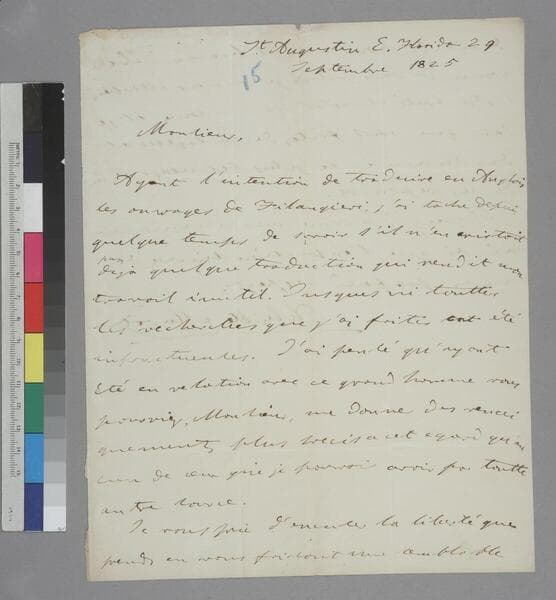 St Augustin E. Florida 29
Septembre 1825
15
Monsieur,
Ayant l'intention de traduire en Anglois
les ouvrages de Filangieri, j'ai taché depuis
quelque temps de savoir s'il n'en existoit
pas
deja quelque traduction qui rendit mon
travail inutil. Jusques ici touttes
les recherches que j'ai faites ont été
infructueuses. J'ai pensé qu'ayant
été en relation avec ce grand homme vous
pourriez, Monsieur, me donner des rensei
gnements plus precis a cet egard qu'au
cun de ceux que je pourrois avoir par toutte
autre source.
Je vous prie d'excuser la liberté que
prends en vous faisant une semblable